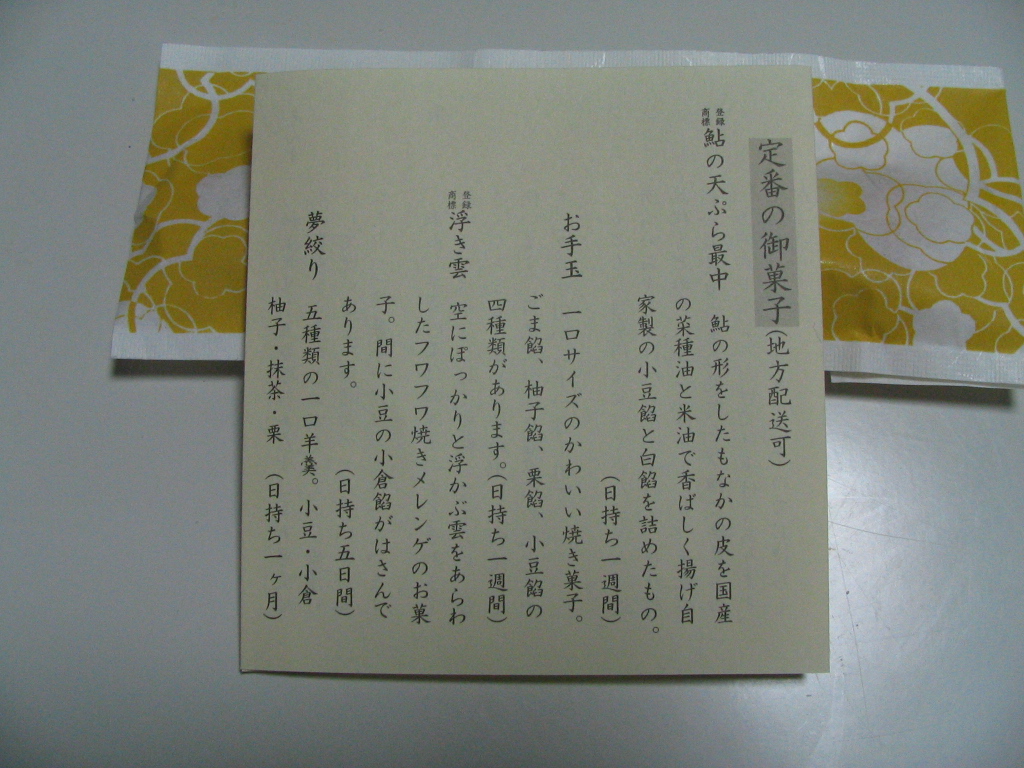 定番の御菓子(地方配送可)
登録商標
鮎の天ぷら最中 鮎の形をしたもなかの皮を国産
の菜種油と米油で香ばしく揚げ自
家製の小豆餡と白餡を詰めたもの。
(日持ち一週間)
お手玉 一口サイズのかわいい焼き菓子。
ごま餡、柚子餡、栗餡、小豆餡の
四種類があります。(日持ち一週間)
登録商標
浮き雲 空にぽっかりと浮かぶ雲をあらわ
したフワフワ焼きメレンゲのお菓
子。間に小豆の小倉餡がはさんで
あります。 (日持ち五日間)
夢絞り 五種類の一口羊羹。小豆・小倉
柚子・抹茶・栗 (日持ち一ヶ月)